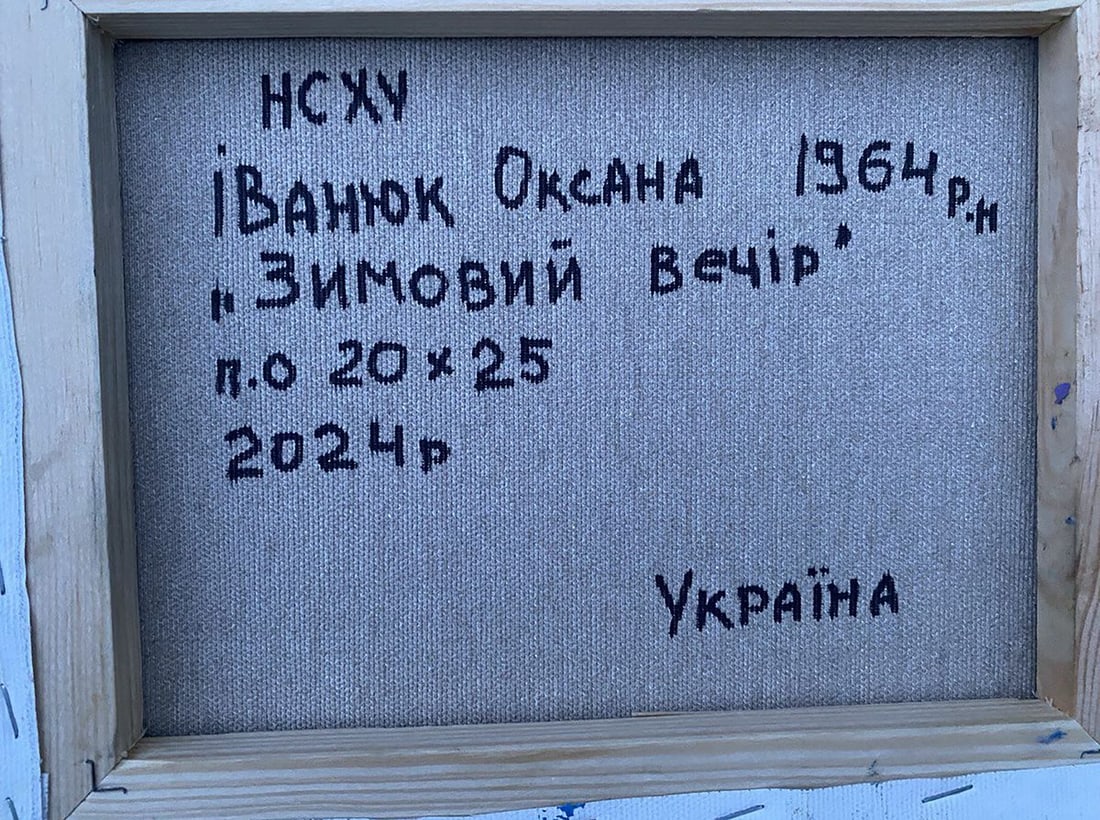 НСХУ
Іванюк Оксана 1964 р.н
„Зимовий вечір"
п.о 20х25
2024р
Україна